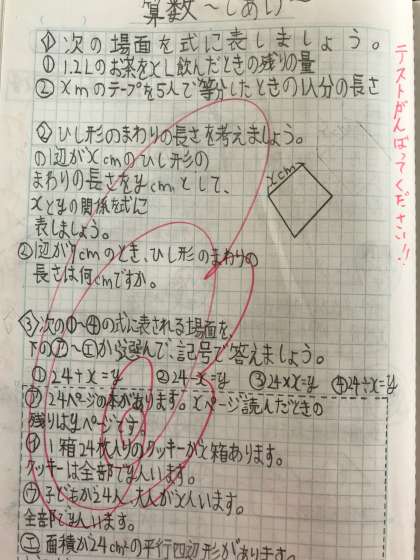 算数〜しあげ〜
①次の場面を式に表しましょう。
①1.2Lのお茶をxL飲んだときの残りの量
②xmのテープを5人で等分したときの1人分の長さ
②ひし形のまわりの長さを考えましょう。
①1辺がxcmのひし形の
まわりの長さをycmとして、
xとyの関係を式に
表しましょう。
xcm
②1辺が7cmのとき、ひし形のまわりの
長さは何cmですか。
③次の①〜④の式に表される場面を、
下の㋐〜㋓から選んで、記号で答えましょう。
①24+x=y ②24-x=y ③24×x=y ④24÷x=y
㋐24ページの本があります。xページ読んだときの
残りはyページです。
㋑1箱24枚入りのクッキーがx箱あります。
クッキーは全部でy枚います。
㋒子どもが24人、大人がx人います。
全部でy人います。
㋓面積が24cm²の平行四辺形があります。
テストがんばってください!!